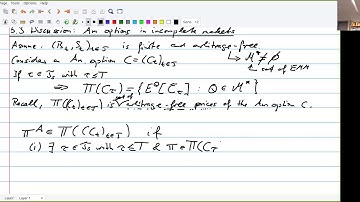 5.3 Discussion: Am option in incomplete markets
Assume: (B_t, S_t)_{t∈T} is finite and arbitrage-free
→ M* ≠ ∅
Consider a Am. option C = (C_t)_{t∈T}
set of EMM
If τ ∈ J_0 with τ ≤ T
⇒ Π(C_τ) = { E^Q[C̃_τ] : Q ∈ M* }
Recall, Π((C_t)_{t∈T}) is set of arbitrage-free prices of the Am option C.
π^A ∈ Π((C_t)_{t∈T}) if
(i) ∃ τ ∈ J_0 with τ ≤ T & π ∈ Π(C_τ
Layer: Layer 1